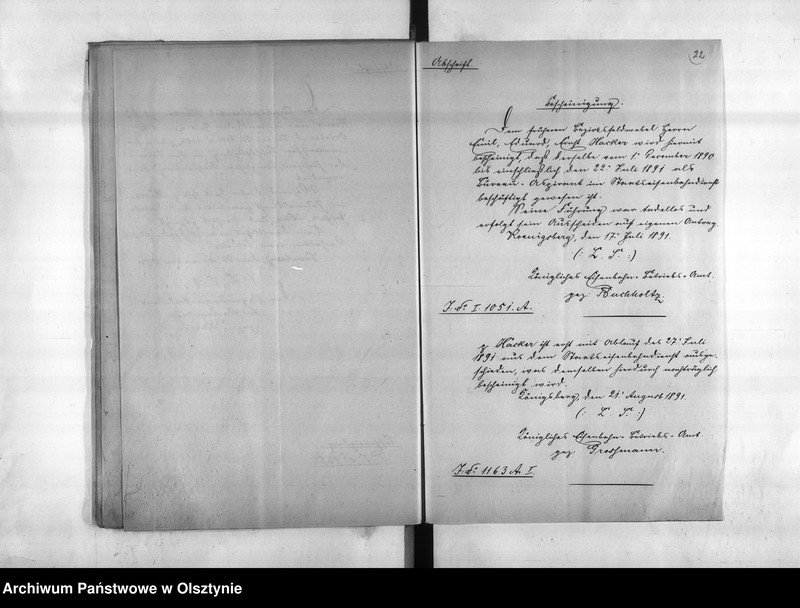 22
Abschrift.
Bescheinigung.
Dem früheren Bezirksfeldwebel Herrn
Emil, Eduard, Ernst Hacker wird hiermit
bescheinigt, daß derselbe vom 1t Dezember 1890
bis einschließlich den 22t Juli 1891 als
Büreau-Aspirant im Staatseisenbahndienst
beschäftigt gewesen ist.
Seine Führung war tadellos und
erfolgt sein Ausscheiden auf eigenen Antrag.
Koenigsberg, den 17t Juli 1891.
(: L. S. :)
Königliches Eisenbahn-Betriebs-Amt.
gez. Buchholtz.
J. No I. 1051. A.
p Häcker ist erst mit Ablauf des 27t Juli
1891 aus dem Staatseisenbahndienst ausge-
schieden, was demselben hierdurch nachträglich
bescheinigt wird.
Königsberg, den 21t August 1891.
(: L. S. :)
Königliches Eisenbahn-Betriebs-Amt.
gez. Grossmann.
J. No 1163 A. I.
Archiwum Państwowe w Olsztynie